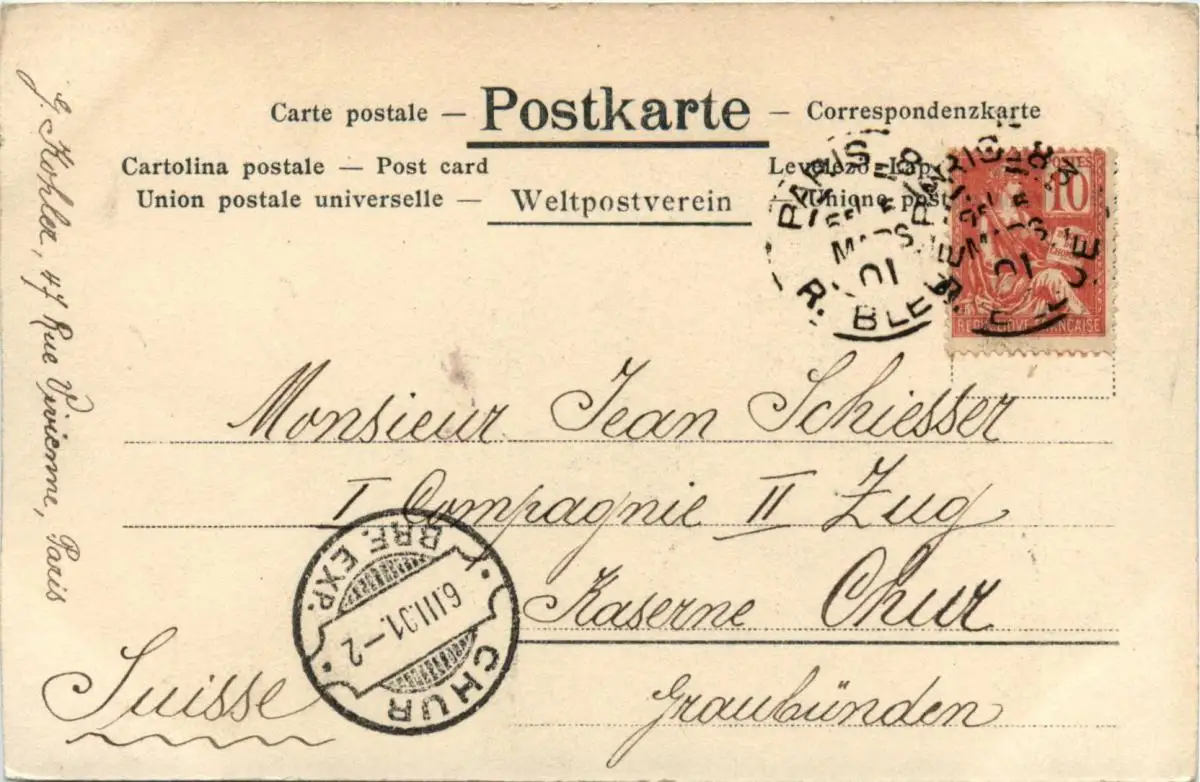 Carte postale — Postkarte — Correspondenzkarte
Cartolina postale — Post card
Union postale universelle — Weltpostverein — Unione post
PARIS
MARS
01
R. BLEUE
PARIS
MARS
01
POSTES
10
REPUBLIQUE FRANÇAISE
Monsieur Jean Schiesser
I Compagnie II Zug
Kaserne Chur
Graubünden
Suisse
CHUR
BRF. EXP.
6.III.01.–2
G. Kohler, 47 Rue Vivienne, Paris